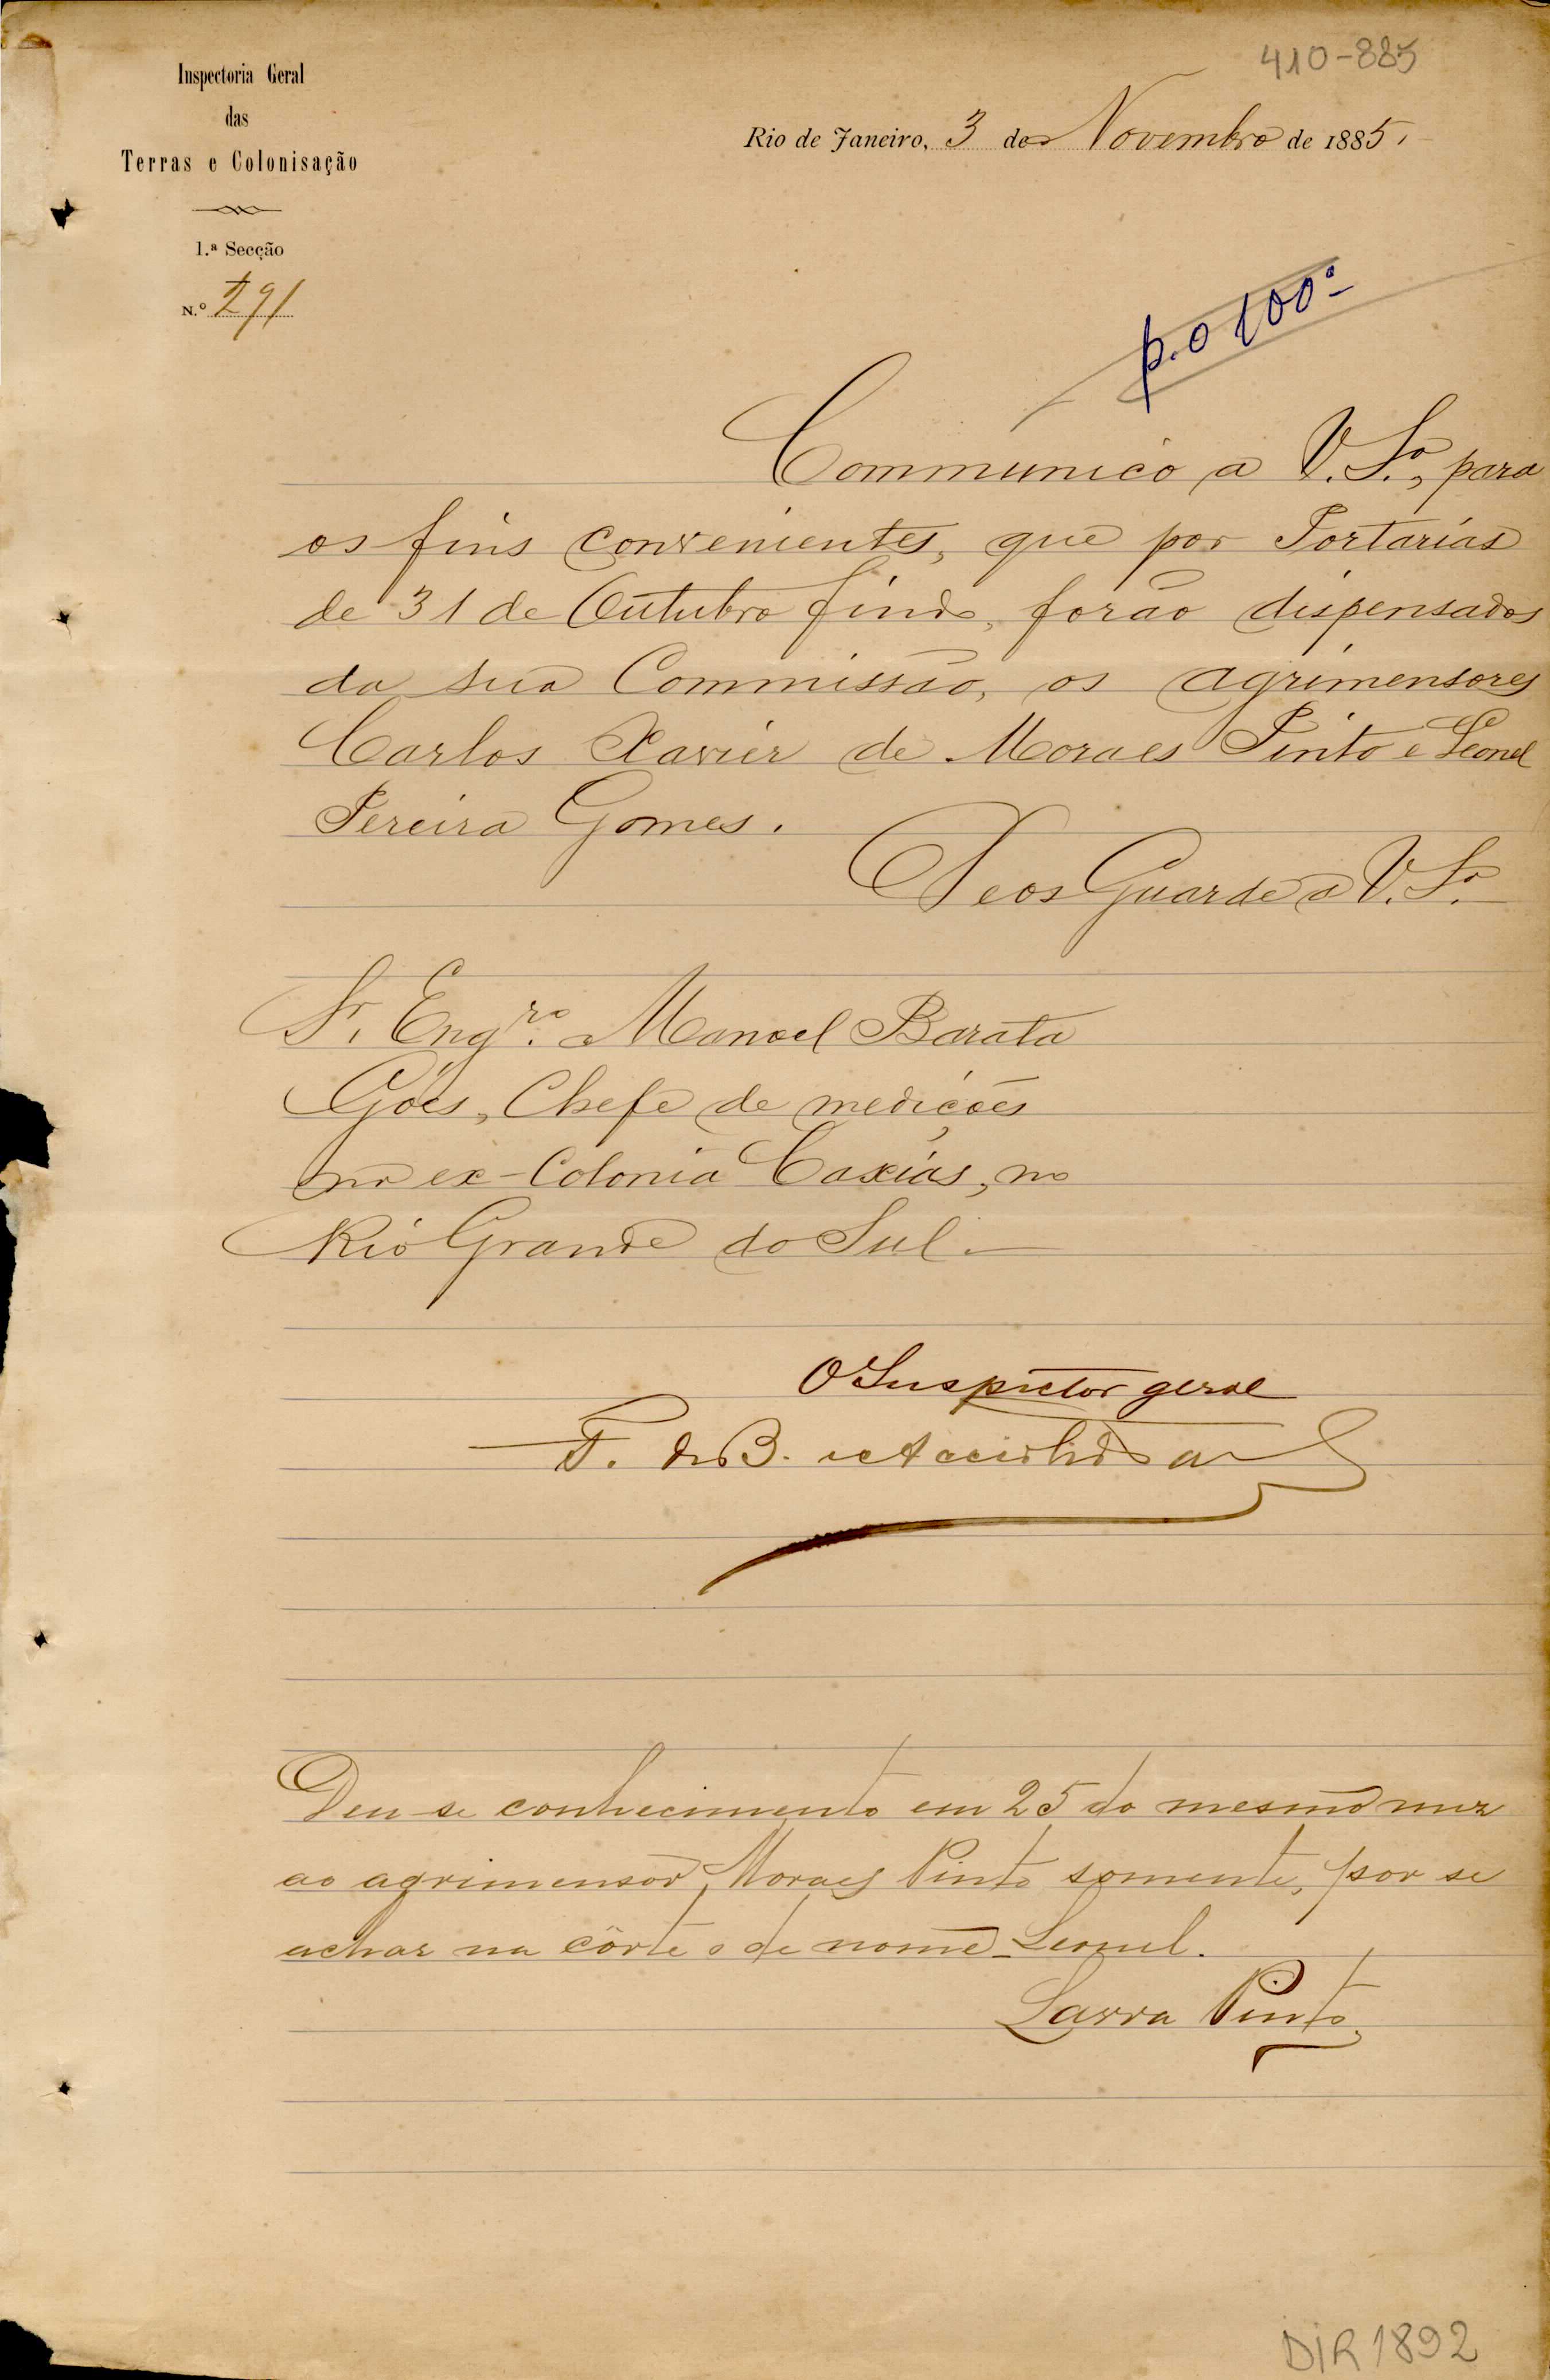 410-885
Inspectoria Geral
das
Terras e Colonisação
1.ª Secção
N.º 291
Rio de Janeiro, 3 de Novembro de 1885.
p.o 100º
Communico a V. Sª, para
os fins convenientes, que por Portarias
de 31 de Outubro findo, forão dispensados
da sua Commissão, os agrimensores
Carlos Xavier de Moraes Pinto e Leonel
Pereira Gomes.
Deos Guarde a V. Sª
Sr. Engro. Manoel Barata
Góes, Chefe de medições
na ex-Colonia Caxias, no
Rio Grande do Sul.
O Inspector geral
F. de B. e Accioli de
Deu-se conhecimento em 25 do mesmo mez
ao agrimensor Moraes Pinto somente, por se
achar na côrte o de nome Leonel.
Larra Pinto
DIR 1892